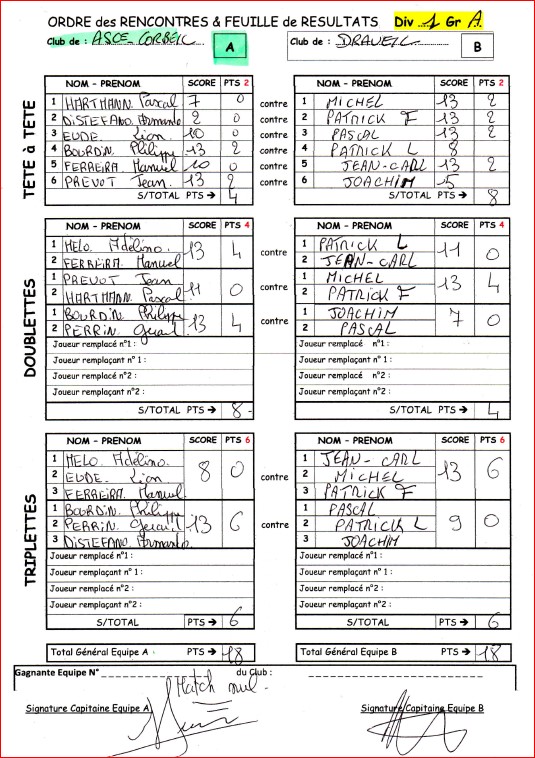 ORDRE des RENCONTRES & FEUILLE de RESULTATS Div 1 Gr A
Club de : ASCE CORBEIL A Club de : DRAVEIL B
TETE à TETE
NOM - PRENOM SCORE PTS 2 NOM - PRENOM SCORE PTS 2
1 HARTMANN Pascal 7 0 contre 1 MICHEL 13 2
2 DISTEFANO Armando 2 0 contre 2 PATRICK F 13 2
3 EUDE Lion 10 0 contre 3 PASCAL 13 2
4 BOURDIN Philippe 13 2 contre 4 PATRICK L 8
5 FERREIRA Manuel 10 0 contre 5 JEAN-CARL 13 2
6 PREVOT Jean. 13 2 contre 6 JOACHIM 5
S/TOTAL PTS → 4 S/TOTAL PTS → 8
DOUBLETTES
NOM - PRENOM SCORE PTS 4 NOM - PRENOM SCORE PTS 4
1 MELO Adélino. 13 4 contre 1 PATRICK L 11 0
2 FERREIRA Manuel 2 JEAN-CARL
1 PREVOT Jean 11 0 contre 1 MICHEL 13 4
2 HARTMANN Pascal 2 PATRICK F
1 BOURDIN Philippe 13 4 contre 1 JOACHIM 7 0
2 PERRIN Gerard. 2 PASCAL
Joueur remplacé n°1 : Joueur remplacé n°1 :
Joueur remplaçant n° 1 : Joueur remplaçant n°1 :
Joueur remplacé n°2 : Joueur remplacé n°2 :
Joueur remplaçant n°2 : Joueur remplaçant n°2 :
S/TOTAL PTS → 8 - S/TOTAL PTS → 4
TRIPLETTES
NOM - PRENOM SCORE PTS 6 NOM - PRENOM SCORE PTS 6
1 MELO Adélino. 8 0 contre 1 JEAN-CARL 13 6
2 EUDE Lion 2 MICHEL
3 FERREIRA Manuel 3 PATRICK F
1 BOURDIN Philippe 13 6 contre 1 PASCAL 9 0
2 PERRIN Gerard 2 PATRICK L
3 DISTEFANO Armando 3 JOACHIM
Joueur remplacé n°1 : Joueur remplacé n°1 :
Joueur remplaçant n°1 : Joueur remplaçant n°1 :
Joueur remplacé n°2 : Joueur remplacé n°2 :
Joueur remplaçant n°2 : Joueur remplaçant n°2 :
S/TOTAL PTS → 6 S/TOTAL PTS → 6
Total Général Equipe A PTS → 18 Total Général Equipe B PTS → 18
Gagnante Equipe N° du Club :
Match nul -
Signature Capitaine Equipe A Signature Capitaine Equipe B